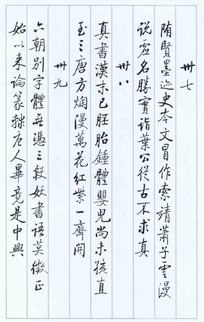 卅七
隋賢墨迹史岑文冒作索靖蕭子雲漫
說虛名勝實詣葉公從古不求真
卅八
真書漢末已胚胎鍾體嬰兒尚未孩直
至三唐方爛漫萬花紅紫一齊開
卅九
六朝別字體無憑三段妖書語莫徵正
始以來論篆隸唐人畢竟是中興